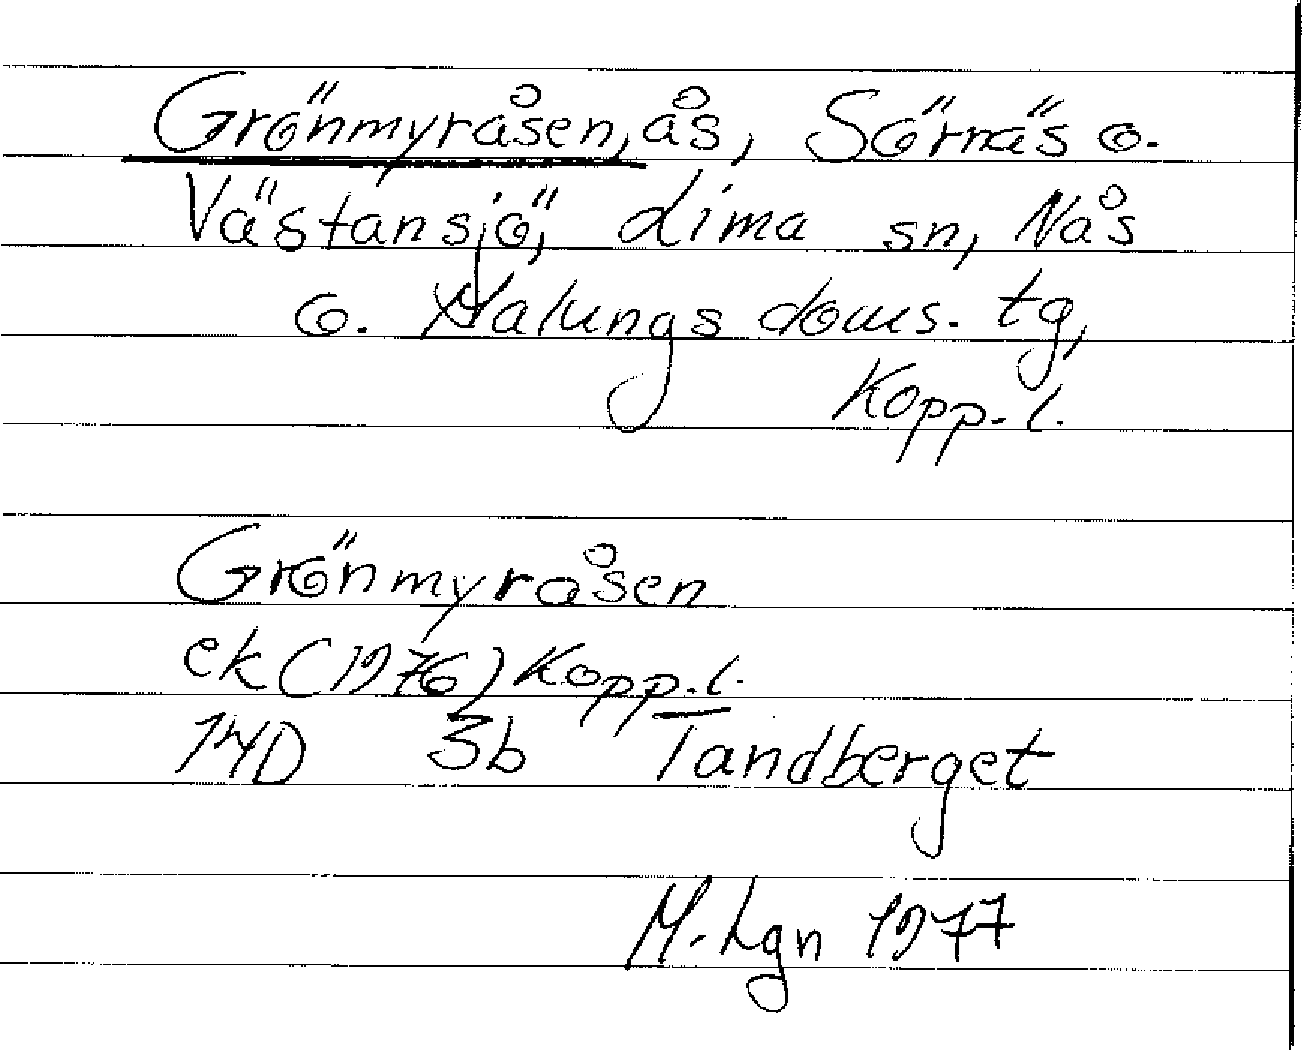 Grönmyråsen, ås, Sörnäs o.
Västansjö, Lima sn, Nås
o. Malungs doms. tg,
Kopp. l.
Grönmyråsen
ek (1976) Kopp. l.
14D 3b Tandberget
M. Lgn 1977